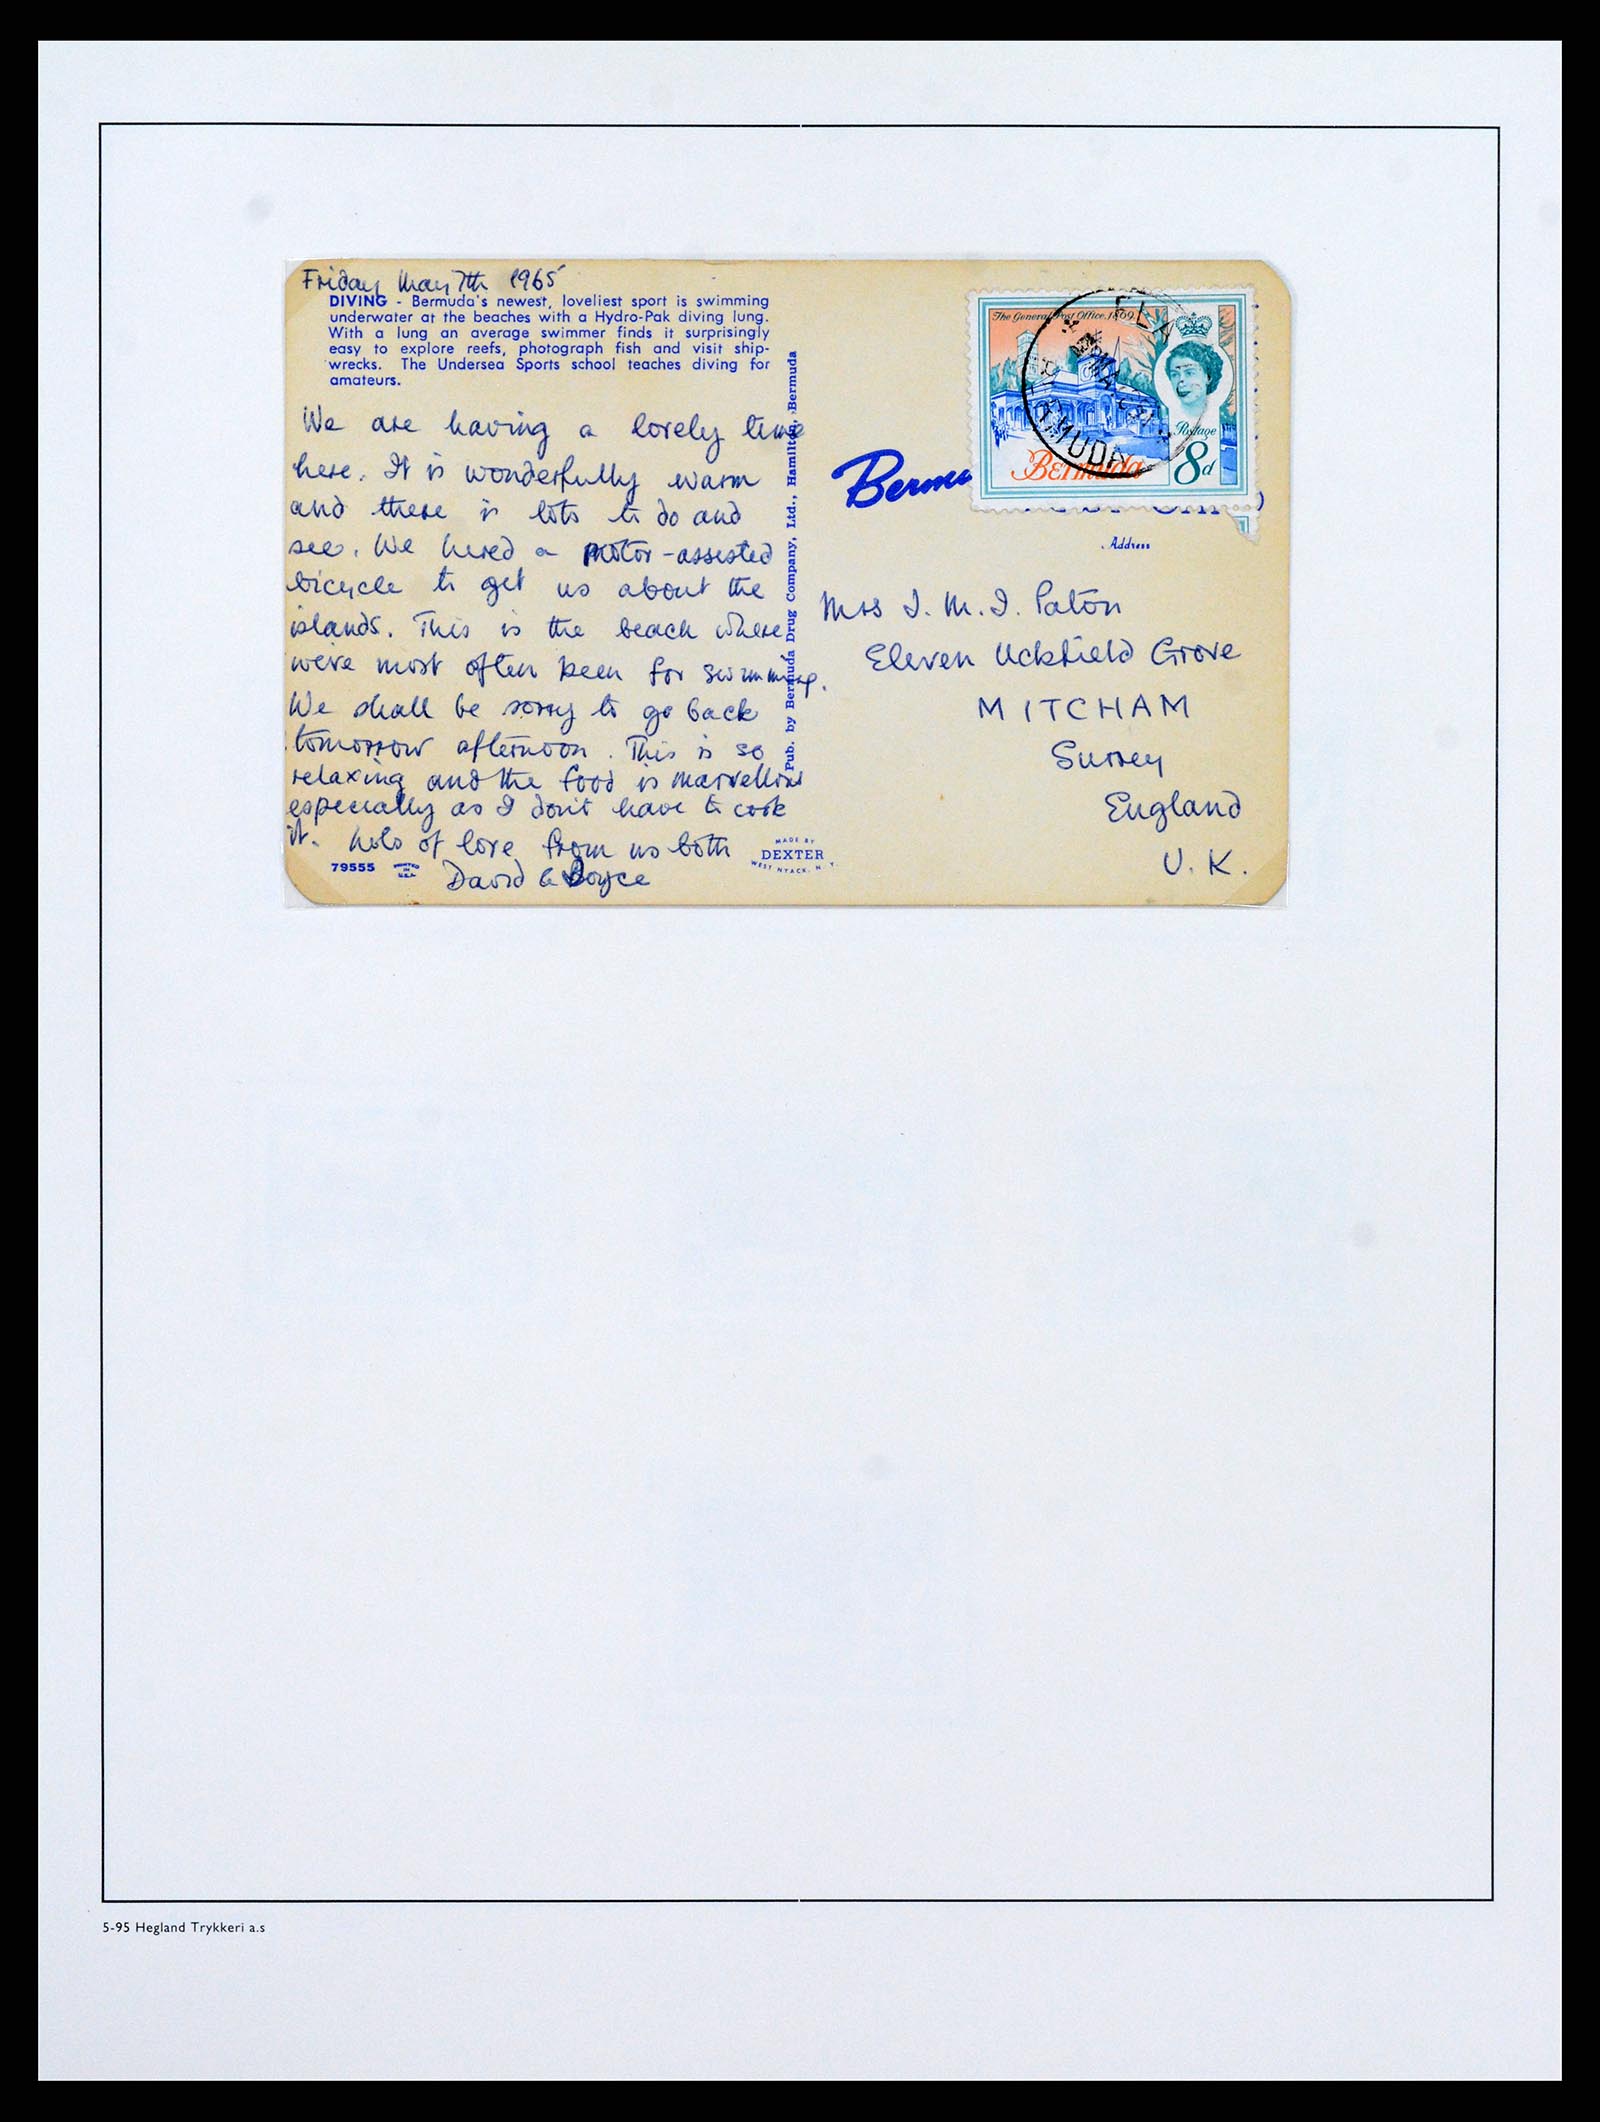 Friday May 7th 1965
DIVING - Bermuda's newest, loveliest sport is swimming
underwater at the beaches with a Hydro-Pak diving lung.
With a lung an average swimmer finds it surprisingly
easy to explore reefs, photograph fish and visit ship-
wrecks. The Undersea Sports school teaches diving for
amateurs.
We are having a lovely time
here. It is wonderfully warm
and there is lots to do and
see. We hired a motor-assisted
bicycle to get us about the
islands. This is the beach where
we've most often been for swimming.
We shall be sorry to go back
tomorrow afternoon. This is so
relaxing and the food is marvellous
especially as I don't have to cook
it. Lots of love from us both
David & Joyce
79555
PRINTED
IN
U.S.A.
MADE BY
DEXTER
WEST NYACK, N. Y.
Pub. by Bermuda Drug Company, Ltd., Hamilton, Bermuda
The General Post Office, 1869
Postage
8d
Bermuda
BERMUDA
Address
Mrs I. M. I. Paton
Eleven Uckfield Grove
MITCHAM
Surrey
England
U. K.
5-95 Hegland Trykkeri a.s